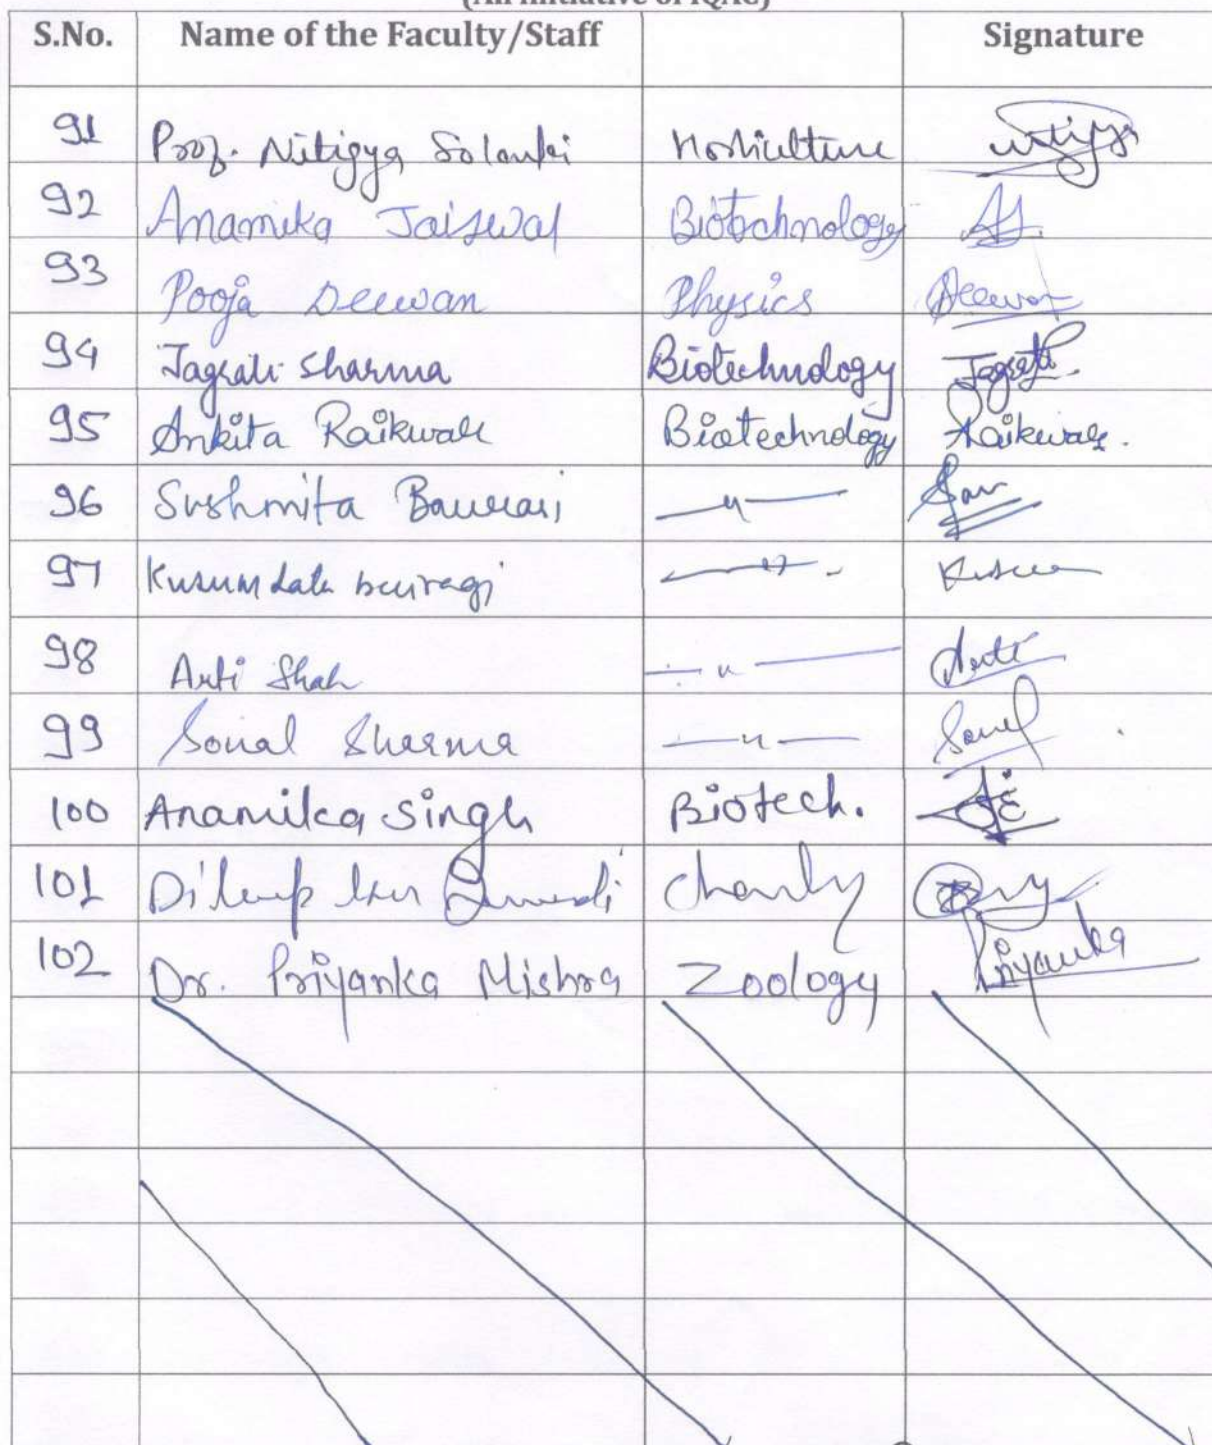 (An Initiative of IQAC)
S.No. Name of the Faculty/Staff Signature
91 Prof. Nitigya Solanki Horticulture
92 Anamika Jaiswal Biotechnology AJ.
93 Pooja Deewan Physics Deewan
94 Jagrati Sharma Biotechnology Jagrati
95 Ankita Raikwar Biotechnology Raikwar.
96 Sushmita Bawari —"—
97 Kusum Lata bairagi —"— Kusum
98 Arti Shah —"— Arti
99 Sonal Sharma —"— Sonal
100 Anamika Singh Biotech.
101 Dileep Dwivedi
102 Dr. Priyanka Mishra Zoology Priyanka